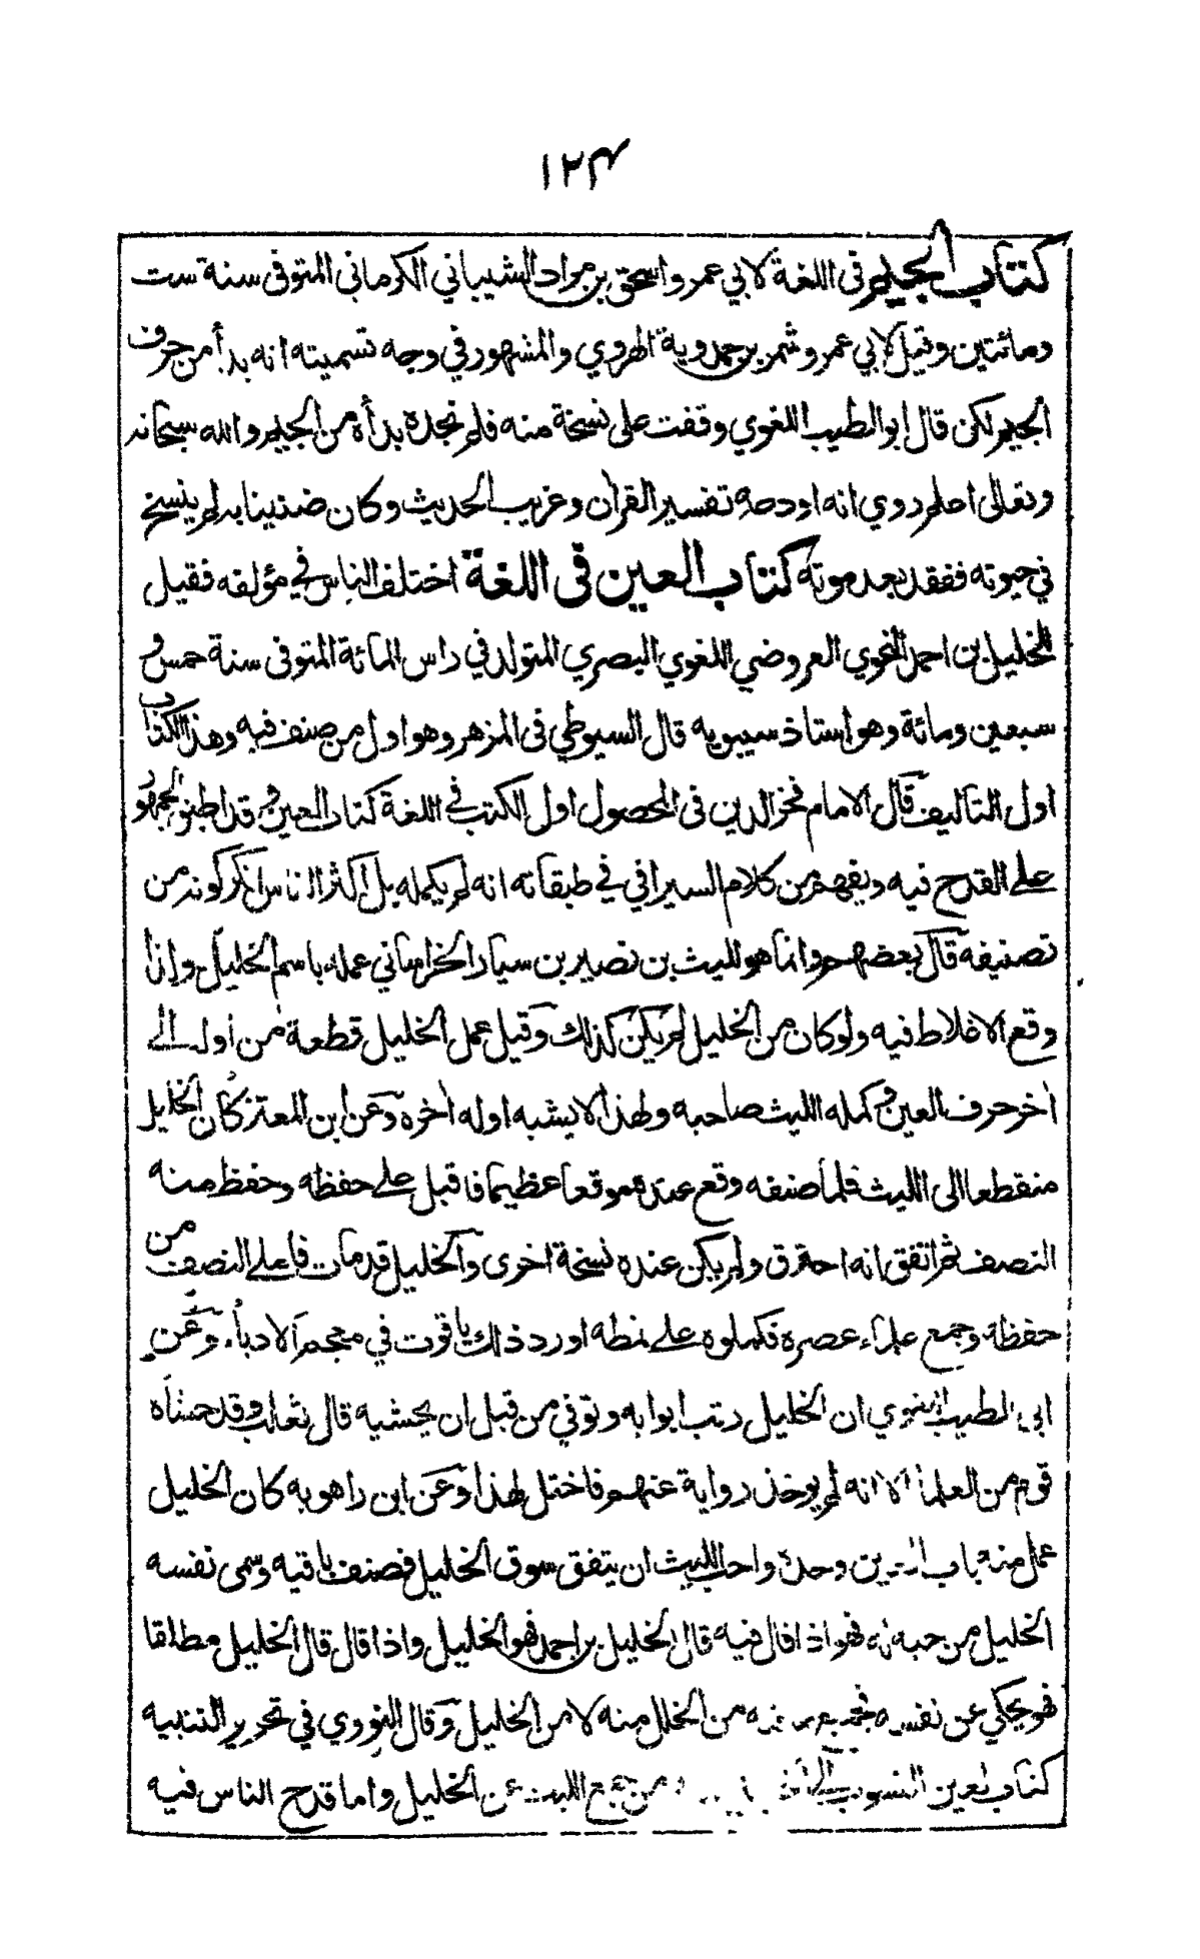 ١٢٤
كتاب الجيم في اللغة لابي عمرو اسحق بن مراد الشيباني الكرماني المتوفى سنة ست
ومائتين وقيل لابي عمرو شمر بن حمدوية الهروي والمشهور في وجه تسميته انه بدأ من حرف
الجيم لكن قال ابو الطيب اللغوي وقفت على نسخة منه فلم نجده بدأه من الجيم والله سبحانه
وتعالى اعلم روي انه اودعه تفسير القرآن وغريب الحديث وكان ضنينا به لم ينسخ
في حيوته ففقد بعد موته كتاب العين في اللغة اختلف الناس في مؤلفه فقيل
الخليل بن احمد النحوي العروضي اللغوي البصري المتولد في راس المائة المتوفى سنة خمس و
سبعين ومائة وهو استاذ سيبويه قال السيوطي في المزهر وهو اول من صنف فيه وهذا الكتاب
اول التاليف قال الامام فخر الدين في المحصول اول الكتب في اللغة كتاب العين وقد اطبق الجمهور
على القدح فيه ويفهم من كلام السيرافي في طبقاته انه لم يكمله بل اكثر الناس انكر كونه من
تصنيفه قال بعضهم وانما هو لليث بن نصير بن سيار الخراساني عمله باسم الخليل وإنما
وقع الاغلاط فيه ولو كان من الخليل لم يكن كذلك وقيل عمل الخليل قطعة من أوله الى
اخر حرف العين وكمله الليث صاحبه ولهذا لا يشبه اوله اخره وعن ابن المعتز كان الخليل
منقطعا الى الليث فلما صنفه وقع عنده موقعا عظيما فاقبل على حفظه وحفظ منه
النصف ثم اتفق انه احترق ولم يكن عنده نسخة اخرى والخليل قد مات فاملى النصف من
حفظه وجمع علماء عصره فكملوه على نمطه اورد ذلك ياقوت في معجم الادباء وعن
ابي الطيب اللغوي ان الخليل رتب ابوابه وتوفي من قبل ان يحشيه قال ثعلب وقد حشاه
قوم من العلماء الا انه لم يوخذ رواية عنهم فاختل لهذا وعن ابن راهويه كان الخليل
عمل منه باب العين وحده واحب الليث ان يتفق سوق الخليل فصنف باقيه وسمى نفسه
الخليل من حبه له فهو اذا قال فيه قال الخليل بن احمد فهو الخليل واذا قال قال الخليل مطلقا
فهو يحكي عن نفسه من الخلل منه لا من الخليل وقال النووي في تحرير التنبيه
كتاب العين المنسوب الى من جمع الليث عن الخليل واما قدح الناس فيه